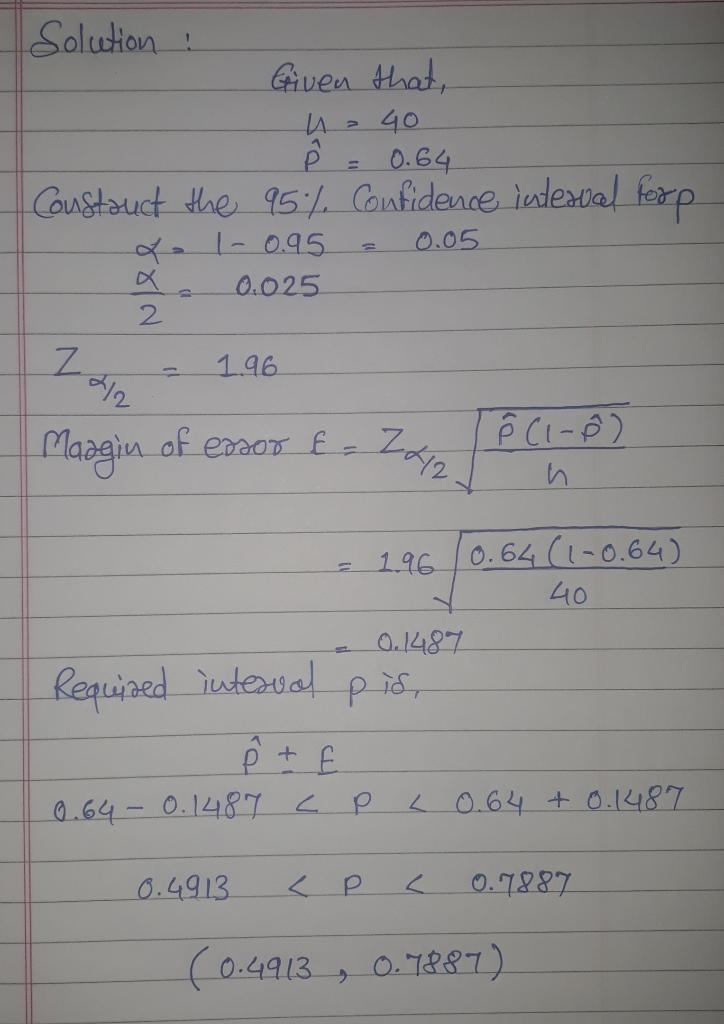 Solution :
Given that,
n = 40
p̂ = 0.64
Construct the 95% Confidence interval for p
α = 1 - 0.95 = 0.05
α/2 = 0.025
Z α/2 = 1.96
Margin of error E = Z α/2 √(p̂(1-p̂)/n)
= 1.96 √(0.64(1-0.64)/40)
= 0.1487
Required interval p is,
p̂ ± E
0.64 - 0.1487 < p < 0.64 + 0.1487
0.4913 < p < 0.7887
(0.4913, 0.7887)